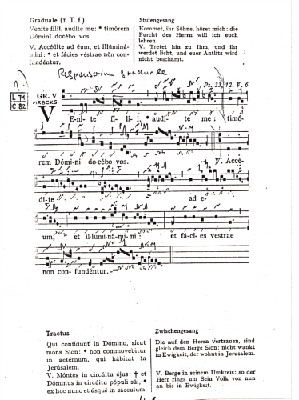 Graduale (T T F)
Venite filii, audite me: * timórem
Dómini docébo vos.
V. Accédite ad eum, et illúminá-
mini: * et fácies vestræ non con-
fundéntur.
Stufengesang
Kommet, ihr Söhne, höret mich: die
Furcht des Herrn will ich euch
lehren.
V. Tretet hin zu ihm, und ihr
werdet licht, und euer Antlitz wird
nicht beschämt.
Responsorium graduale
Ps. 33, 12. V. 6
GR. V
V
E-ni-te fi-li-i, * audi-te me: timó-
rem Dómi-ni do-cébo vos. V. Accé-
di-te ad e-
um, et il-lumi-ná-mi-ni: et fá-ci-es vestræ
non con-fundéntur.
Tractus
Qui confídunt in Dómino, sicut
mons Sion: * non commovébitur
in ætérnum, qui hábitat in
Jerúsalem.
V. Montes in circúitu ejus: † et
Dóminus in circúitu pópuli sui, *
ex hoc nunc et usque in sǽculum.
Zwischengesang
Die auf den Herrn vertrauen, sind
gleich dem Berge Sion: nicht wankt
in Ewigkeit, der wohnt in Jerusalem.
V. Berge in seinem Umkreis: so der
Herr rings um Sein Volk von nun
an bis in Ewigkeit.